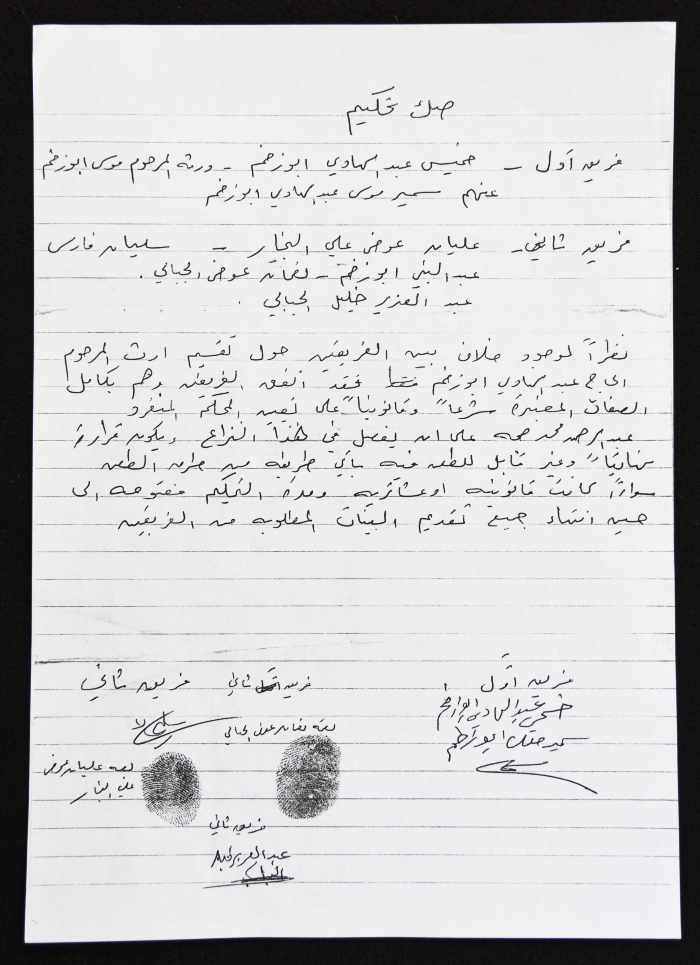 صك تحكيم
فريق أول - خميس عبد الهادي ابوزخم - ورثة المرحوم موسى ابوزخم
عنهم سمير موسى عبد الهادي ابوزخم
فريق ثاني - عليان عوض علي النجار - سليمان فارس
عبد النبي ابوزخم - نعمان عوض الجبالي .
عبد العزيز خليل الجبالي .
نظراً لوجود خلاف بين الفريقين حول تقسيم ارث المرحوم
الحاج عبد الهادي ابوزخم فقد اتفق الفريقين وهم بكامل
الصفات المعتبرة شرعاً وقانونياً على تعيين المحكم المنفرد
عبد الرحمن محمد على ان يفصل في هذا النزاع ويكون قراره
نهائياً وغير قابل للطعن فيه بأي طريقة من طرق الطعن
سواءً كانت قانونية او عشائرية ومدة التحكيم مفتوحة الى
حين انتهاء جميع تقديم البينات المطلوبة من الفريقين
فريق أول
خميس عبد الهادي ابوزخم
سمير ابوزخم
فريق ثاني
بصمة نعمان عوض الجبالي
فريق ثاني
بصمة عليان عوض
علي النجار
فريق ثاني
عبد العزيز